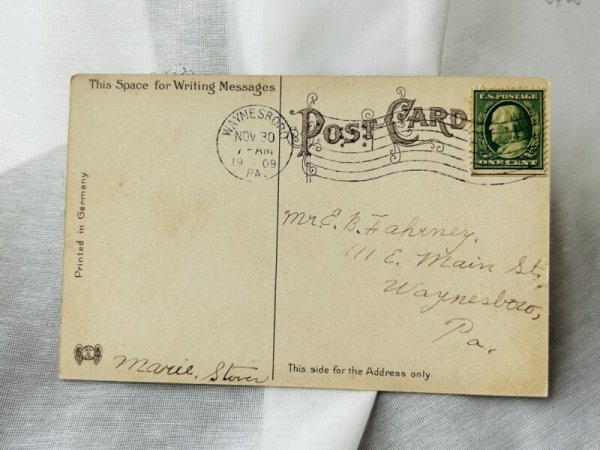 This Space for Writing Messages
WAYNESBORO
NOV 30
7-AM
19 09
PA.
POST CARD
U.S. POSTAGE
ONE CENT
Printed in Germany
Mr E. B. Fahrney,
111 E. Main St.,
Waynesboro,
Pa.
Marie, Stover
This side for the Address only.